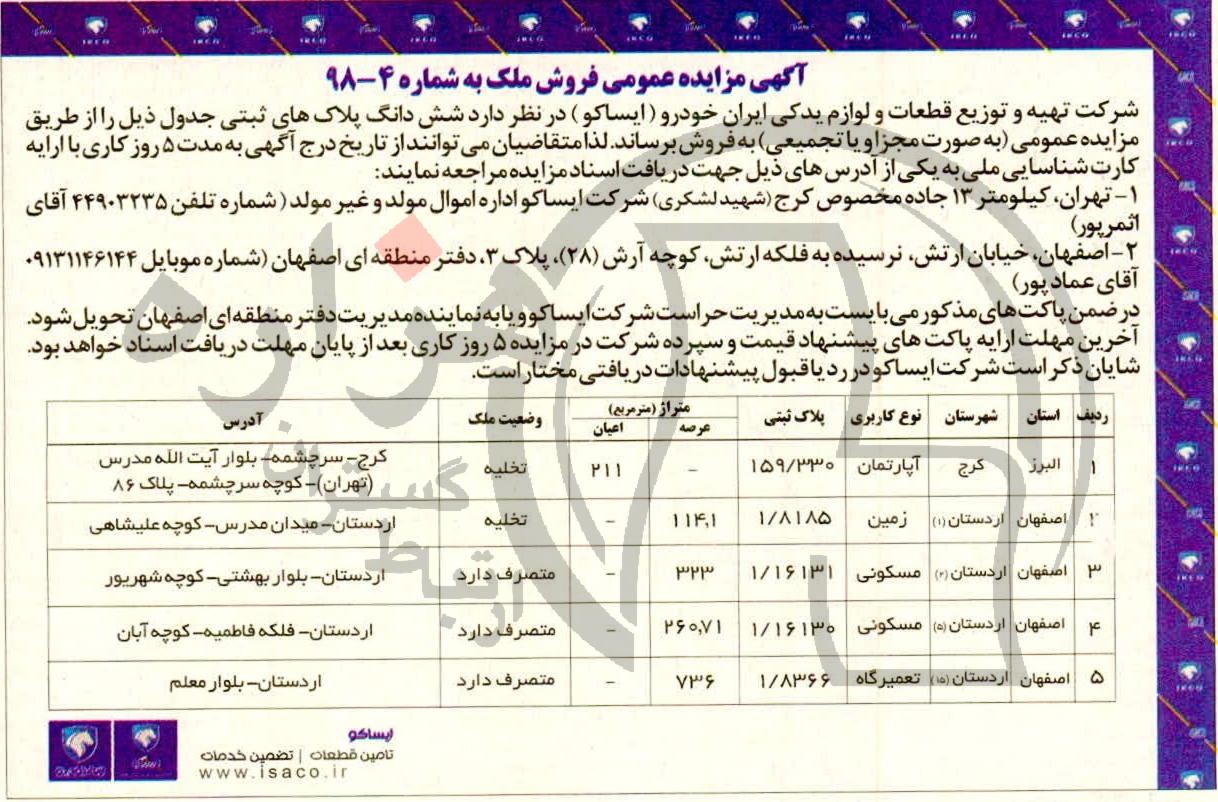 آگهی مزایده عمومی فروش ملک به شماره ۴-۹۸
شرکت تهیه و توزیع قطعات و لوازم یدکی ایران خودرو ( ایساکو ) در نظر دارد شش دانگ پلاک های ثبتی جدول ذیل را از طریق
مزایده عمومی (به صورت مجزا و یا تجمیعی) به فروش برساند. لذا متقاضیان می توانند از تاریخ درج آگهی به مدت ۵ روز کاری با ارایه
کارت شناسایی ملی به یکی از آدرس های ذیل جهت دریافت اسناد مزایده مراجعه نمایند:
۱- تهران، کیلومتر ۱۳ جاده مخصوص کرج (شهید لشکری) شرکت ایساکو اداره اموال مولد و غیر مولد ( شماره تلفن ۴۴۹۰۳۲۳۵ آقای
اثمرپور)
۲- اصفهان، خیابان ارتش، نرسیده به فلکه ارتش، کوچه آرش (۲۸)، پلاک ۳، دفتر منطقه ای اصفهان (شماره موبایل ۰۹۱۳۱۱۴۶۱۴۴
آقای عماد پور)
در ضمن پاکت های مذکور می بایست به مدیریت حراست شرکت ایساکو و یا به نماینده مدیریت دفتر منطقه ای اصفهان تحویل شود.
آخرین مهلت ارایه پاکت های پیشنهاد قیمت و سپرده شرکت در مزایده ۵ روز کاری بعد از پایان مهلت دریافت اسناد خواهد بود.
شایان ذکر است شرکت ایساکو در رد یا قبول پیشنهادات دریافتی مختار است.
ردیف استان شهرستان نوع کاربری پلاک ثبتی متراژ (مترمربع) عرصه اعیان وضعیت ملک آدرس
۱ البرز کرج آپارتمان ۱۵۹/۳۳۰ - ۲۱۱ تخلیه کرج- سرچشمه- بلوار آیت الله مدرس
(تهران)- کوچه سرچشمه- پلاک ۸۶
۲ اصفهان اردستان (۱) زمین ۱/۸۱۸۵ ۱۱۴,۱ - تخلیه اردستان- میدان مدرس- کوچه علیشاهی
۳ اصفهان اردستان (۲) مسکونی ۱/۱۶۱۳۱ ۳۲۳ - متصرف دارد اردستان- بلوار بهشتی- کوچه شهریور
۴ اصفهان اردستان (۵) مسکونی ۱/۱۶۱۳۰ ۲۶۰,۷۱ - متصرف دارد اردستان- فلکه فاطمیه- کوچه آبان
۵ اصفهان اردستان (۱۵) تعمیرگاه ۱/۸۳۶۶ ۷۳۶ - متصرف دارد اردستان- بلوار معلم
ایساکو
تامین قطعات | تضمین خدمات
www.isaco.ir
هزاره
گستران
ارتباط